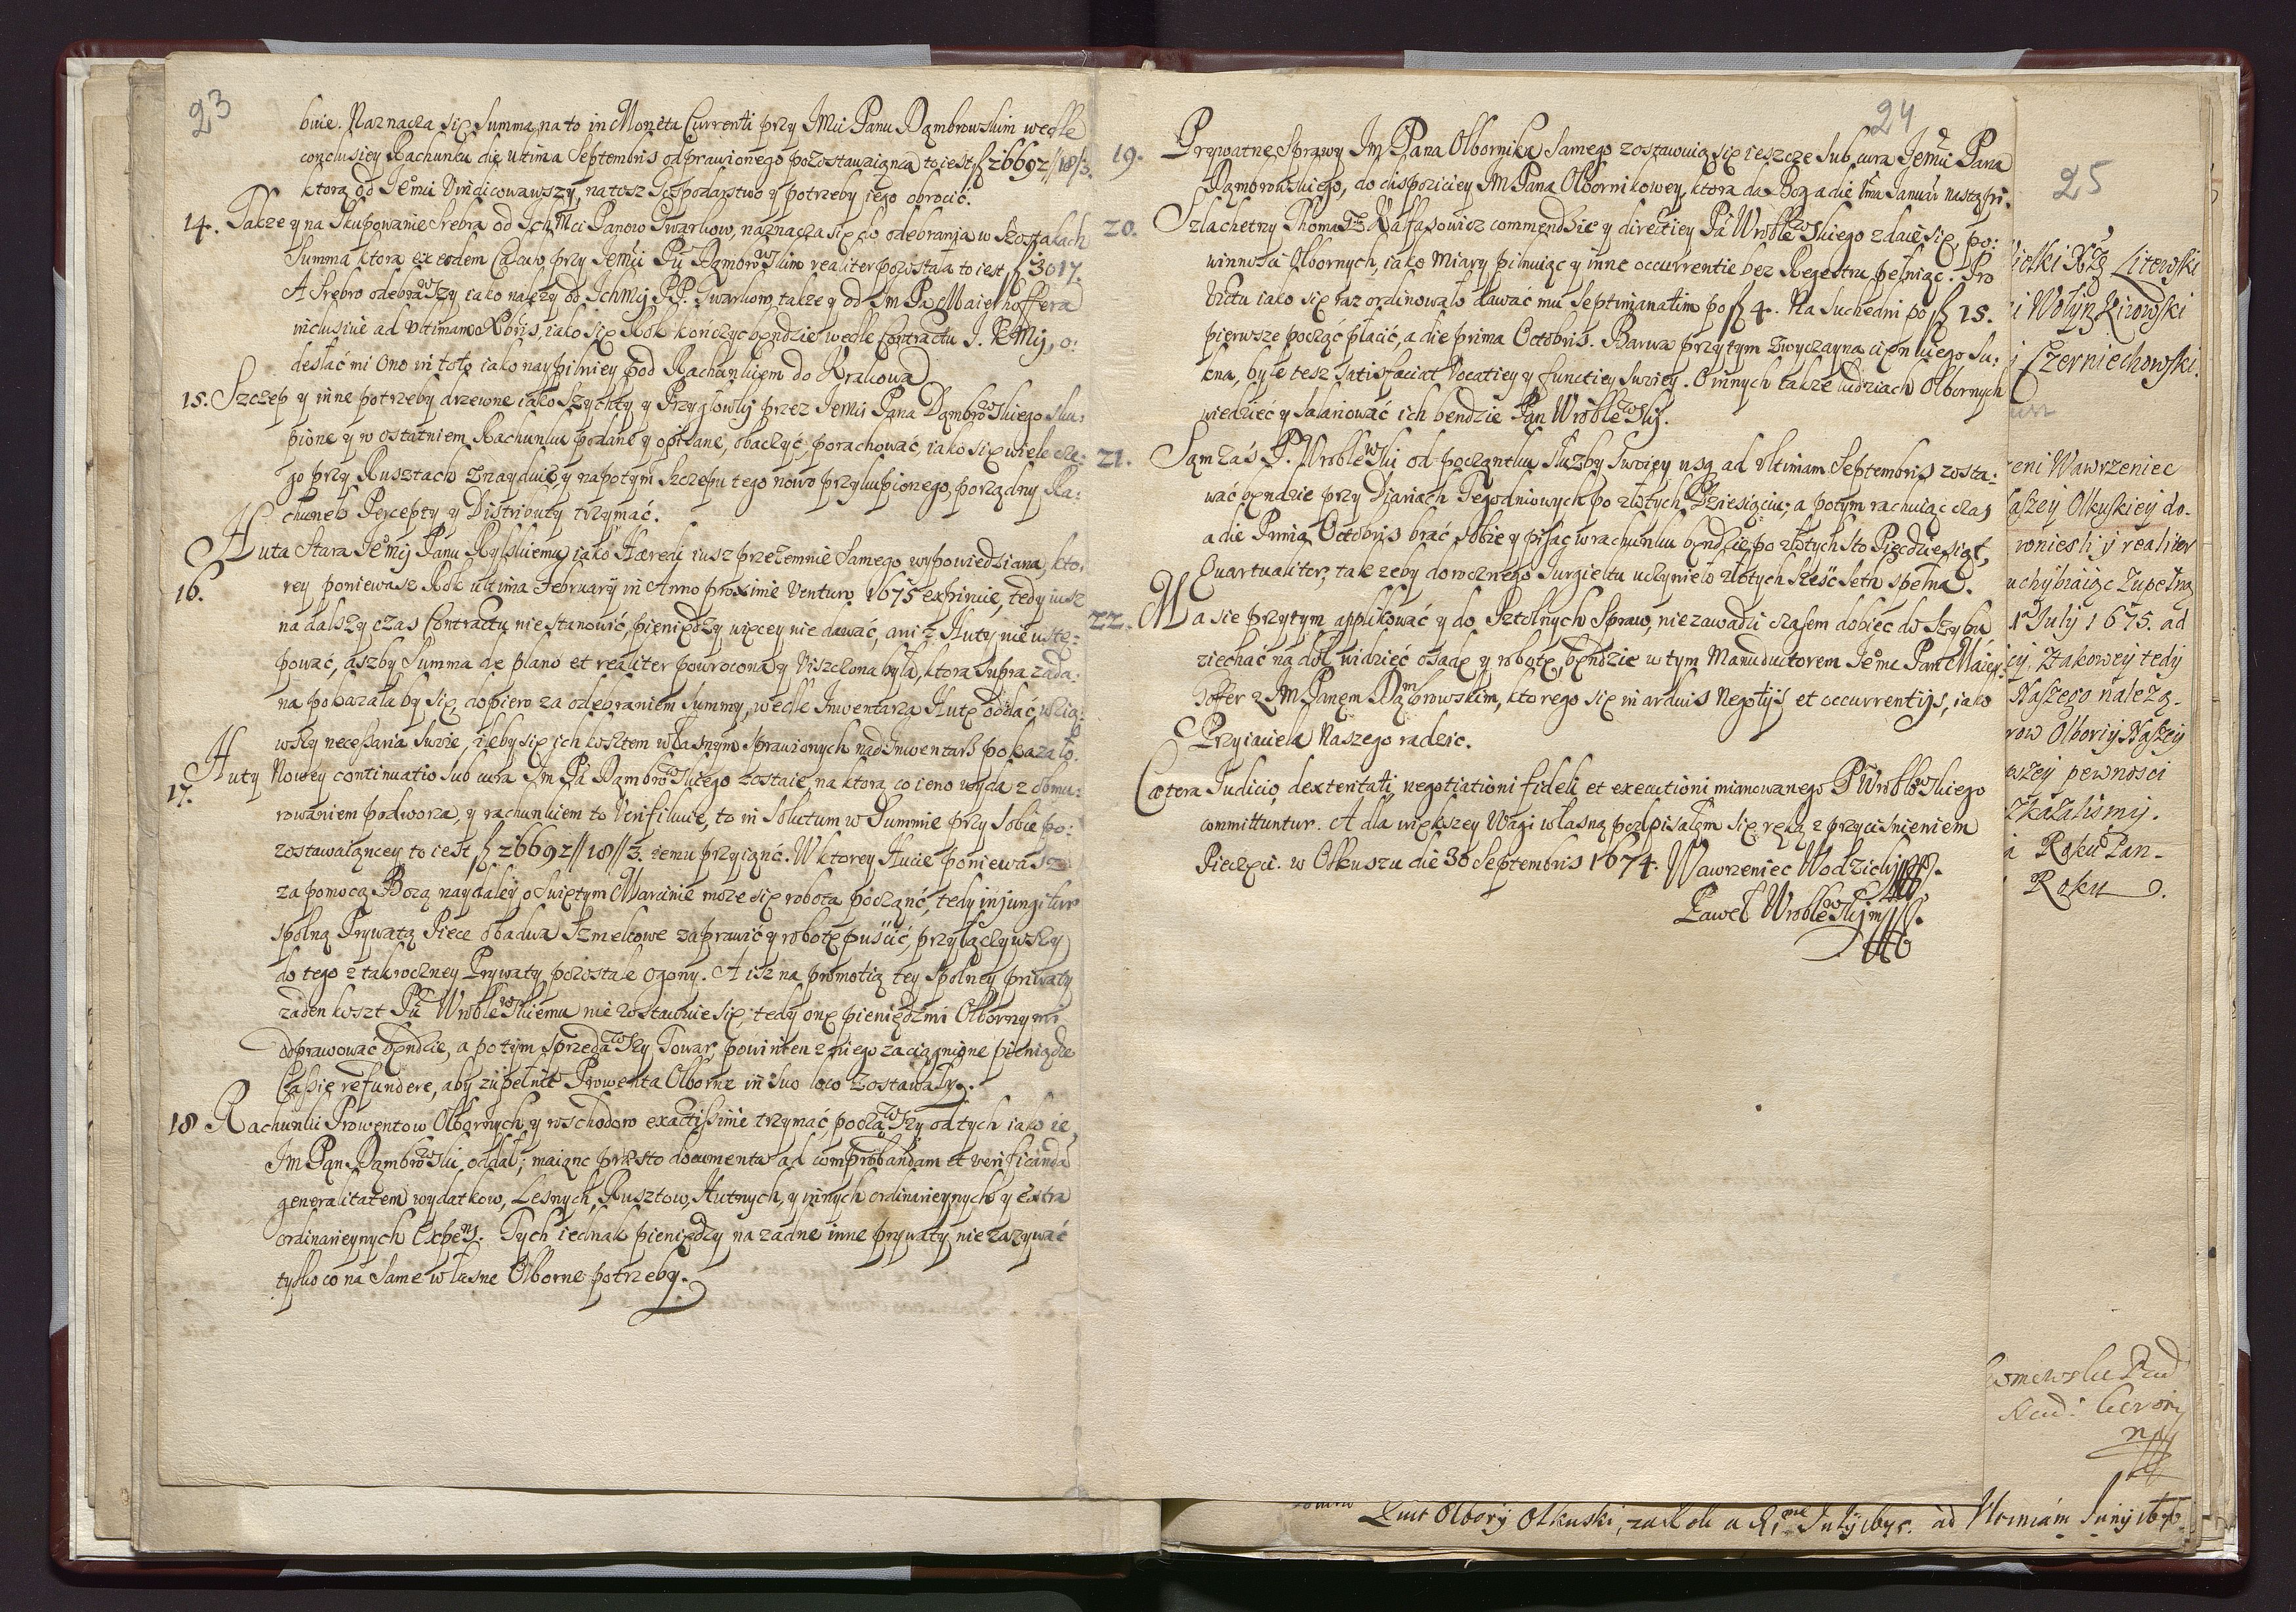 23
buie. Naznacza się Summa na to in Moneta Currenti przy JMci Panu Dąmbrowskim wedle
conclusiey Rachunku die ultima Septembris odprawionego pozostawaiąnca to iest f 26692//18/3.
ktorą od Jemci Vindicowawszy, na tosz Gospodarstwo y potrzeby iego obrocić.
14. Także y na Skupowanie Srebra od Ich Mci Panow Gwarkow, naznacza się do odebrania w Szostakach
Summa ktora ex eodem Calculo przy Jemci Pu Dąmbrowskim realiter pozostała to iest f 3017.
A Srebro odebrawszy iako należy od Ichmij PP. Gwarkow, także y od Jm Pa Maierhoffera
inclusive ad Vltimam Xbris, iako się Rok kończyć będzie wedle Contractu J. K Mij, o:
desłać mi ono in toto iako naypilniey pod Rachunkiem do Krakowa
15. Szczep y inne potrzeby drzewne iako Szychty y Przygłowki przez Jemci Pana Dąmbrowskiego sku:
pione y w ostatniem Rachunku podane y opisane, obaczyć, porachować, iako się wiele cze:
go przy Rusztach znayduie, y napotym Szczepu tego nowo przykupionego, porządny Ra:
chunek Percepty y Distributy trzymać.
16. Huta Stara Jemij Panu Rylskiemu iako Hæredi iusz przezemnie Samego wypowiedziana, kto:
rey poniewasz Rok ultima February in Anno proximè Venturo 1675 expiruie, tedy iusz
na dalszy czas Contractu nie stanowić, pieniędzy więcey nie dawać, ani z Huty nie ustę:
pować, aszby Summa de plano et realiter powrocona y Viszczona była, ktora Supra zada:
na pokazała by się, dopiero za odebraniem Summy, wedle Inwentarza Hutę oddać, wzią:
wszy necessaria Swoie, ileby się ich kosztem własnym sprawionych nad Inwentarz pokazało.
17. Huty Nowey continuatio sub cura Jm Pa Dąmbrowskiego zostaie, na ktorą co ieno wyda z obmu:
rowaniem podworza, y rachunkiem to Verifikuie, to in Solutum w Summie przy Sobie po:
zostawaiąncey to iest f 26692//18//3. iemu przyiąnć. W ktorey Hucie poniewasz
za pomocą Bożą naydaley o Swiętym Marcinie może się robota począnć, tedy injungitur
spolną Prywatą Piece obadwa Szmelcowe zaprawić y robotę puścić, przyłączywszy
do tego z takroczney Prywaty pozostałe ogony. A isz na promotią tey Spolney priwaty
żaden koszt Pu Wroblewskiemu nie zostawuie się, tedy onę pieniędzmi Olbornymi
odprawować będzie, a potym sprzedawszy Towar, powinien z niego zaciągnione pieniądze
Cassie refundere, aby zupełnie Prowenta Olborne in suo loco zostawały.
18 Rachunki Prowentow Olbornych y rozchodow exactissimè trzymać, począwszy od tych iako ie
Jm Pan Dąmbrowski oddał; maiąnc præsto documenta ad comprobandam et verificandã
generalitatem wydatkow, Lesnych, Rusztow, Hutnych, y innych ordinarieynych y extra
ordinarieynych Expens. Tych iednak pieniędzy na żadne inne prywaty nie zażywać
tylko co na same własne Olborne potrzeby.
24
19. Prywatne Sprawy Jm Pana Olbornika Samego zostawuią się ieszcze Sub cura Jemci Pana
Dąmbrowskiego, do dispoziciey JM Pana Olbornikowey, ktora da Bog a die 1ma Januar nastąpi.
20. Szlachetny Thomasz Rafałowicz commendzie y directiey Pa Wroblewskiego zdaie się, po:
winnosci Olbornych, iako Miary pilnuiąc y inne occurrentie bez Regestru pełniąc. Pro
Victu iako się raz ordinowało dawać mu Septimanatim po f 4. Na Suchedni po f 15.
pierwsze począć płacić, a die prima Octobris. Barwa przytym zwyczayna cienkiego Su:
kna, byle tesz Satisfaciat Vocatiey y functiey Swoiey. O innych także ludziach Olbornych
wiedzieć y Salariować ich bendzie Pan Wroblewskj.
21. Sam zaś P. Wroblewski od począntku Służby Swoiey usq ad Vltimam Septembris zosta:
wać będzie przy Diariach Tegodniowych po złotych Dziesiąciu; a potym rachuiąc czas
a die Prima Octobris brać sobie y pisać w rachunku będzie po złotych Sto Pięcdziesiąt,
Quartualiter, tak żeby do rocznego Jurgieltu uczyniło złotych Sześć Seth spełna.
22. Ma się przytym applikować y do Sztolnych Spraw, nie zawadzi czasem dobiec do Szybu,
ziechać na doł, widzieć osadę y robotę, będzie w tym Manuductorem Jemc Pan Maier:
hoffer z JM Panem Dąmbrowskim, ktorego się in arduis Negotijs et occurrentijs, iako
Przyiaciela Naszego radzic.
Cætera Judicio, dexteritati, negotiationi fideli et executioni mianowanego P Wroblewskiego
committuntur. A dla większey Wagi własną podpisałem się ręką z przyciśnieniem
Pieczęci. w Olkuszu die 30 Septembris 1674. Wawrzeniec Wodzicky mp.
Paweł Wroblewskj mp.
25
ielki Xżę Litewski
i Wołyn Kiiowski
Czerniechowski.
eni Wawrzeniec
aszey Olkuskiey do-
roniesli y realiter
uchybiaiąc Zupełną
July 1675. ad
ey. Z takowey tedy
Naszego należą-
row Olbory Naszey
wszey pewnosci
zkazalismy.
Roku Pan-
Roku
Quit Olbory Olkuski, za Rok a d 1me July 1675. ad Vltimam Junij 1676.